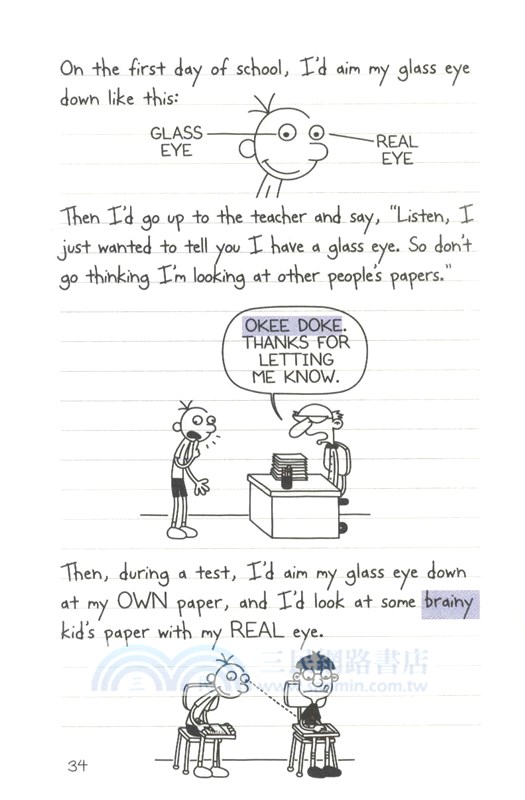 On the first day of school, I'd aim my glass eye
down like this:
GLASS
EYE
REAL
EYE
Then I'd go up to the teacher and say, "Listen, I
just wanted to tell you I have a glass eye. So don't
go thinking I'm looking at other people's papers."
OKEE DOKE.
THANKS FOR
LETTING
ME KNOW.
Then, during a test, I'd aim my glass eye down
at my OWN paper, and I'd look at some brainy
kid's paper with my REAL eye.
三民網路書店
34